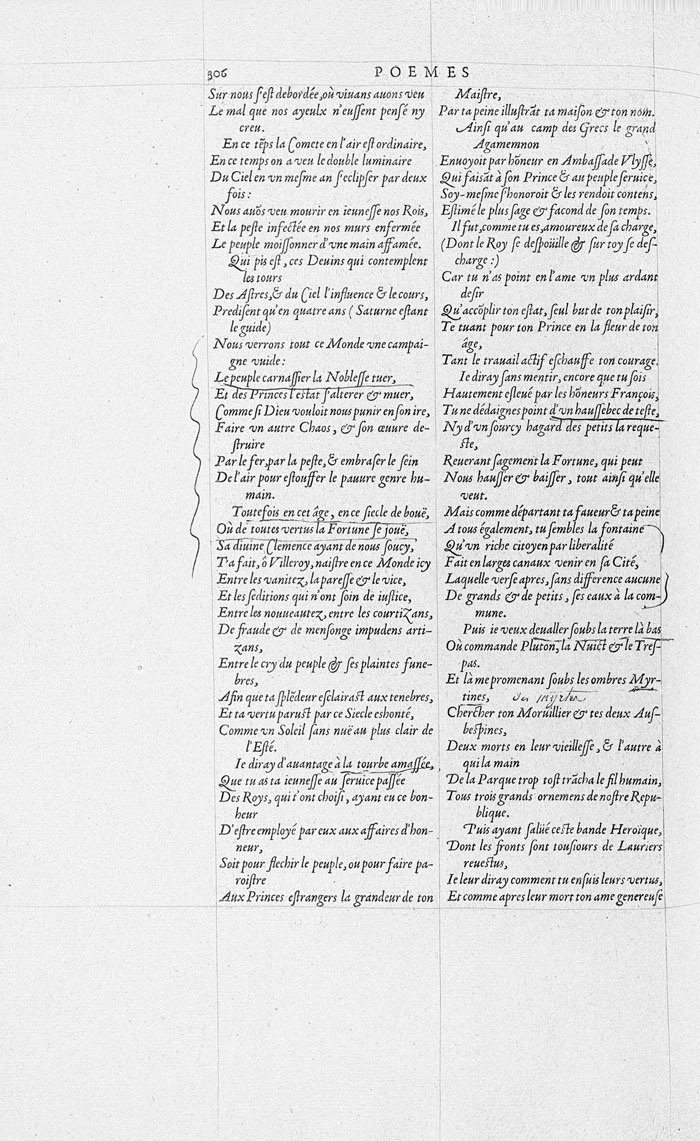 306
POEMES
Sur nous s'est debordée, où viuans auons veu
Le mal que nos ayeulx n'eussent pensé ny
creu.
En ce tēps la Comete en l'air est ordinaire,
En ce temps on a veu le double luminaire
Du Ciel en vn mesme an s'eclipser par deux
fois :
Nous auōs veu mourir en ieunesse nos Rois,
Et la peste infectée en nos murs enfermée
Le peuple moissonner d'vne main affamée.
Qui pis est, ces Deuins qui contemplent
les tours
Des Astres, & du Ciel l'influence & le cours,
Predisent qu'en quatre ans ( Saturne estant
le guide)
Nous verrons tout ce Monde vne campai-
gne vuide :
Le peuple carnassier la Noblesse tuer,
Et des Princes l'estat s'alterer & muer,
Comme si Dieu vouloit nous punir en son ire,
Faire vn autre Chaos, & son œuure de-
struire
Par le fer, par la peste, & embraser le sein
De l'air pour estouffer le pauure genre hu-
main.
Toutefois en cet âge, en ce siecle de bouë,
Où de toutes vertus la Fortune se jouë,
Sa diuine Clemence ayant de nous soucy,
T'a fait, ô Villeroy, naistre en ce Monde icy
Entre les vanitez, la paresse & le vice,
Et les seditions qui n'ont soin de iustice,
Entre les nouueautez, entre les courtizans,
De fraude & de mensonge impudens arti-
zans,
Entre le cry du peuple & ses plaintes fune-
bres,
Afin que ta splēdeur esclairast aux tenebres,
Et ta vertu parust par ce Siecle eshonté,
Comme vn Soleil sans nuë au plus clair de
l'Esté.
Ie diray d'auantage à la tourbe amassée,
Que tu as ta ieunesse au seruice passée
Des Roys, qui t'ont choisi, ayant eu ce bon-
heur
D'estre employé par eux aux affaires d'hon-
neur,
Soit pour flechir le peuple, ou pour faire pa-
roistre
Aux Princes estrangers la grandeur de ton
Maistre,
Par ta peine illustrāt ta maison & ton nom.
Ainsi qu'au camp des Grecs le grand
Agamemnon
Enuoyoit par hōneur en Ambassade Vlysse,
Qui faisāt à son Prince & au peuple seruice,
Soy-mesme s'honoroit & les rendoit contens,
Estimé le plus sage & facond de son temps.
Il fut, comme tu es, amoureux de sa charge,
(Dont le Roy se despoüille & sur toy se des-
charge :)
Car tu n'as point en l'ame vn plus ardant
desir
Qu'accōplir ton estat, seul but de ton plaisir,
Te tuant pour ton Prince en la fleur de ton
âge,
Tant le trauail actif eschauffe ton courage.
Ie diray sans mentir, encore que tu sois
Hautement esleué par les hōneurs François,
Tu ne dédaignes point d'vn haussebec de teste,
Ny d'vn sourcy hagard des petits la reque-
ste,
Reuerant sagement la Fortune, qui peut
Nous hausser & baisser, tout ainsi qu'elle
veut.
Mais comme départant ta faueur & ta peine
A tous également, tu sembles la fontaine
Qu'vn riche citoyen par liberalité
Fait en larges canaux venir en sa Cité,
Laquelle verse apres, sans difference aucune
De grands & de petits, ses eaux à la com-
mune.
Puis ie veux deualler soubs la terre là bas
Où commande Pluton, la Nuict & le Tres-
pas.
Et là me promenant soubs les ombres Myr-
tines, des myrtes
Chercher ton Moruillier & tes deux Aus-
bespines,
Deux morts en leur vieillesse, & l'autre à
qui la main
De la Parque trop tost trācha le fil humain,
Tous trois grands ornemens de nostre Repu-
blique.
Puis ayant salüé ceste bande Heroïque,
Dont les fronts sont tousiours de Lauriers
reuestus,
Ie leur diray comment tu ensuis leurs vertus,
Et comme apres leur mort ton ame genereuse